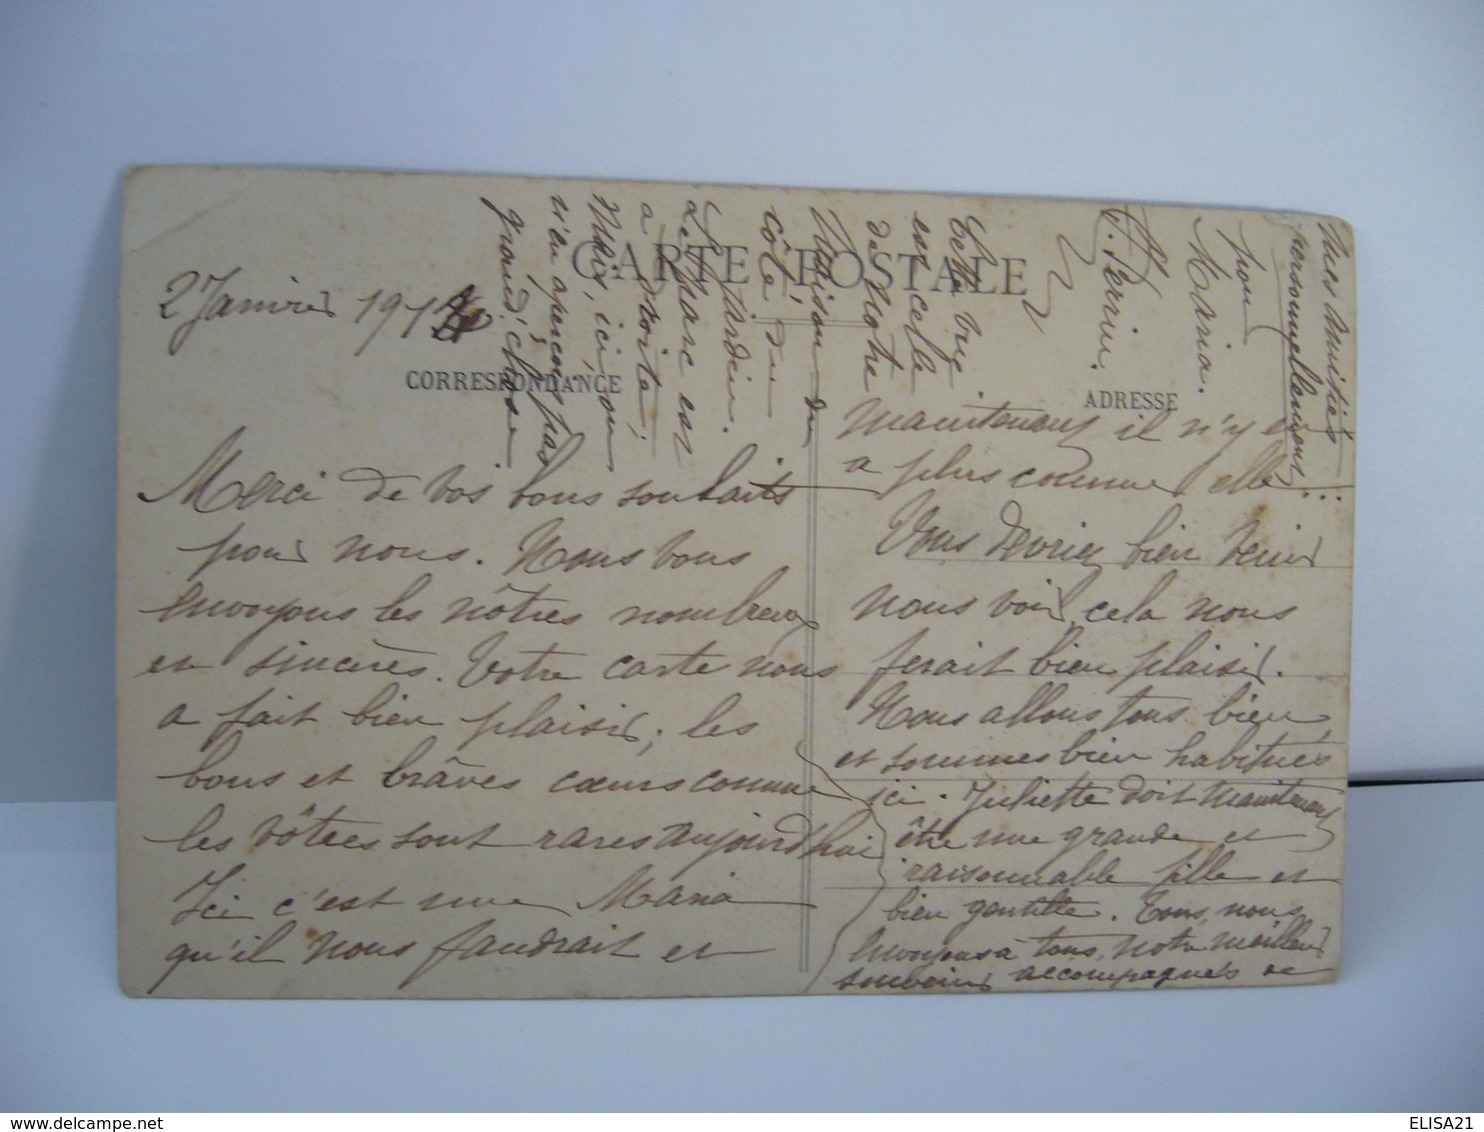 CARTE POSTALE
CORRESPONDANCE
ADRESSE
2 Janvier 191
Merci de vos bons souhaits
pour nous. Nous vous
envoyons les nôtres nombreux
et sincères. Votre carte nous
a fait bien plaisir; les
bons et brâves cœurs comme
les vôtres sont rares aujourd'hui
Ici c'est une Maria
qu'il nous faudrait et
maintenant il n'y en
a plus comme elle...
Vous devriez bien venir
nous voir, cela nous
ferait bien plaisir.
Nous allons tous bien
et sommes bien habitués
ici. Juliette doit maintenant
être une grande et
raisonnable fille et
bien gentille. Tous, nous
envoyons à tous, notre meilleur
souvenir accompagnés de
Mes amitiés
personnellement
pour
Maria.
J. Perrin.
Cette vue
est celle
de Notre
Maison du
côté du
Jardin.
Le Parc est
à droite;
Mais, ici, on
n'en aperçoit pas
grand'chose
ELISA21